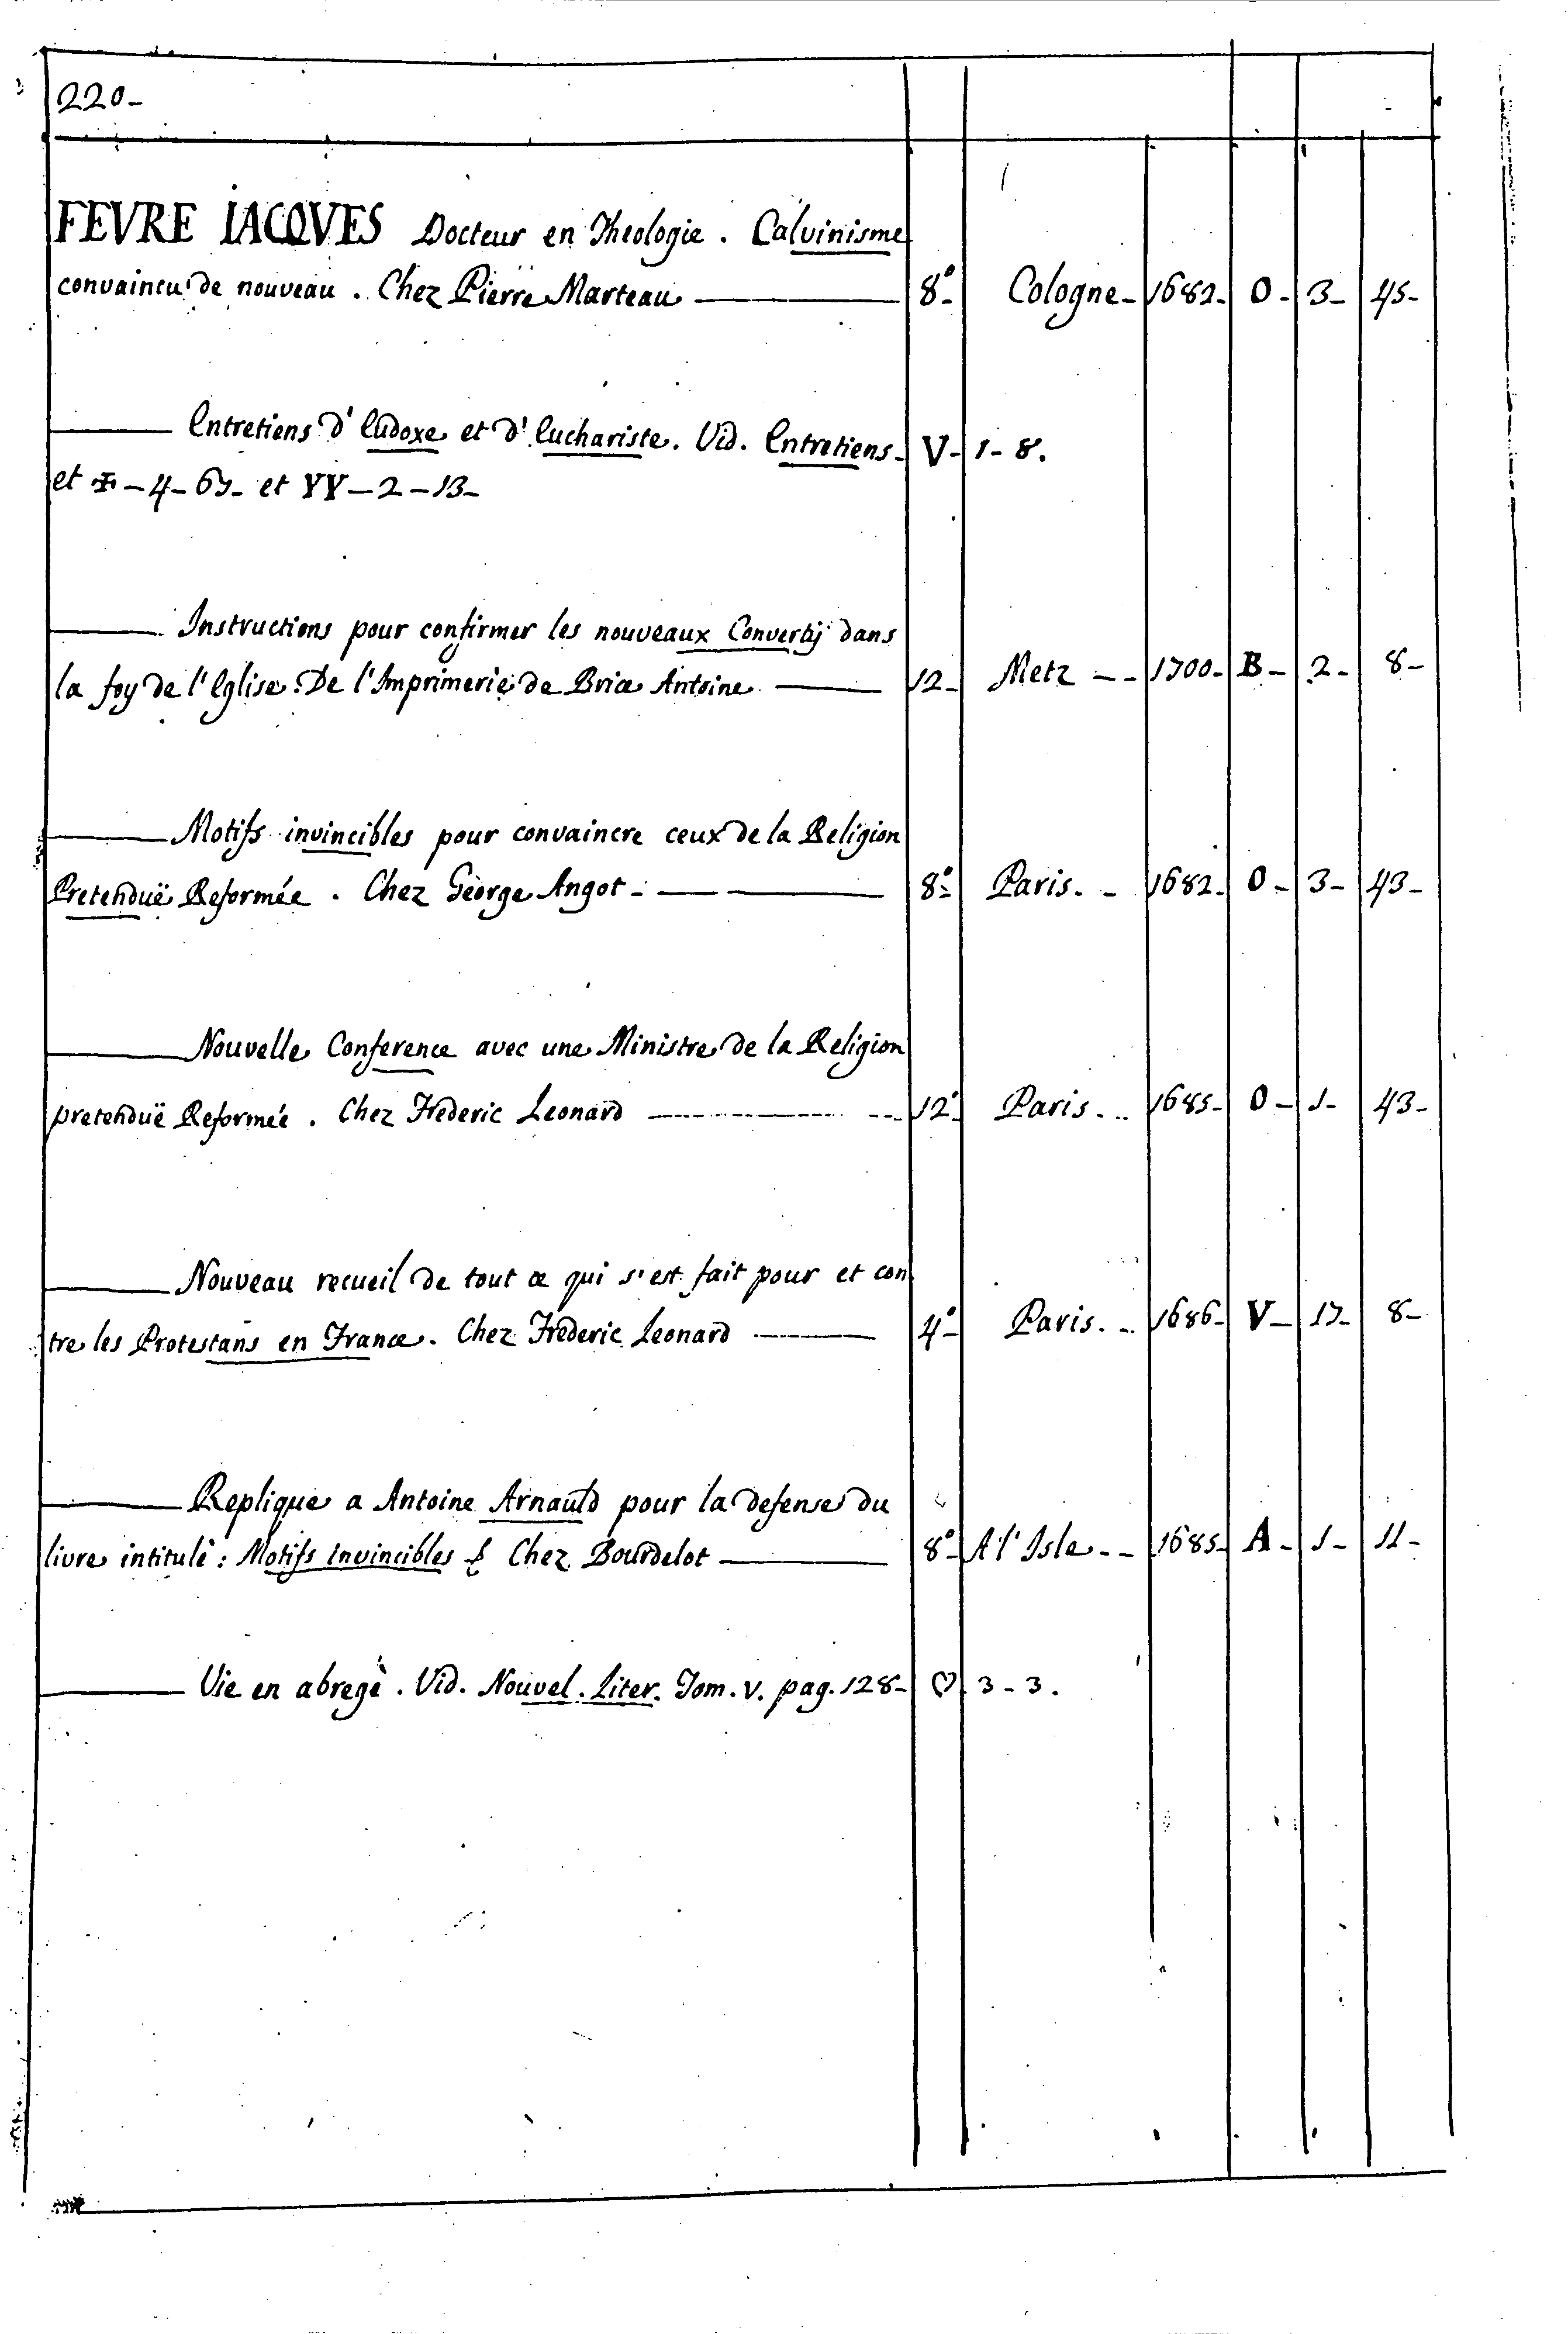 220-
FEVRE IACQVES Docteur en Theologie . Calvinisme
convaincu de nouveau . Chez Pierre Marteau — 8° Cologne- 1682- O - 3- 45-
— Entretiens d' Eudoxe et d' Euchariste. Vid. Entretiens- V- 1- 8.
et - 4- 67- et YY - 2 - 13-
— Instructions pour confirmer les nouveaux Convertis dans
la foy de l' Eglise. De l' Imprimerie de Brice Antoine — 12- Metz - - 1700- B - 2 - 8 -
— Motifs invincibles pour convaincre ceux de la Religion
Pretenduë Reformée . Chez George Angot - — 8° Paris. - 1682- O - 3- 43-
— Nouvelle Conference avec une Ministre de la Religion
pretenduë Reformée . Chez Frederic Leonard — 12° Paris - 1685- O - 1- 43-
— Nouveau recueil de tout ce qui s'est fait pour et con
tre les Protestans en France . Chez Frederic Leonard — 4° Paris. - 1686- V- 17- 8-
— Replique a Antoine Arnauld pour la defense du
livre intitulè : Motifs Invincibles & Chez Bourdelot — 8° A l' Isle - - 1685- A - 1- 11-
— Vie en abregè . Vid. Nouvel. Liter. Tom. V. pag. 128- ♡ 3 - 3 .